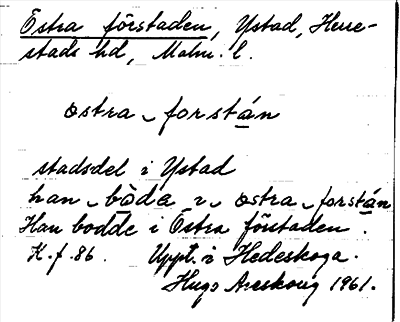 Östra förstaden, Ystad, Herre-
stads hd, Malm. l.
östra ͜ forstán
stadsdel i Ystad
han ͜ bòda i ͜ östra ͜ forstán
Han bodde i Östra förstaden.
K. f. 86. Uppt. i Hedeskoga.
Hugo Areskoug 1961.